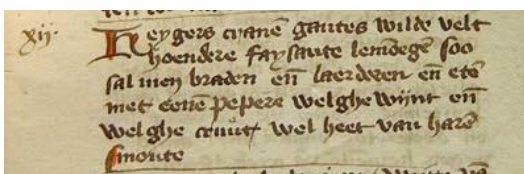 xij·
Reygers cranē gantes wilde velt
hoendere faysante lemdegē soo
salmen braden eñ laerderen eñ etē
met eenē pepere welghewijnt eñ
welghe cruut wel heet van harē
smoute